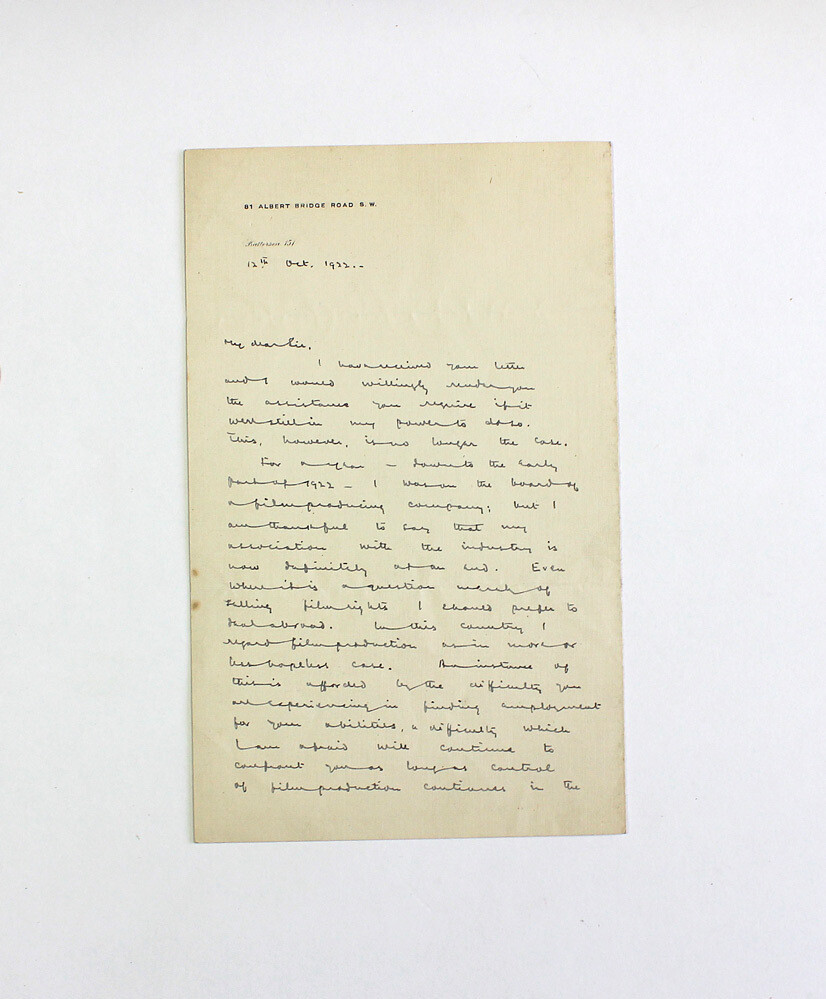 81 ALBERT BRIDGE ROAD S.W.
Battersea 151
12th Oct. 1922.-
My dear Sir,
I have received your letter
and I would willingly render you
the assistance you require if it
were still in my power to do so.
This, however, is no longer the case.
For a year – down to the early
part of 1922 – I was on the board of
a film producing company; but I
am thankful to say that my
association with the industry is
now definitely at an end. Even
where it is a question merely of
selling film rights I should prefer to
deal abroad. In this country I
regard film production as in more or
less hopeless case. An instance of
this is afforded by the difficulty you
are experiencing in finding employment
for your abilities, a difficulty which
I am afraid will continue to
confront you as long as control
of film production continues in the